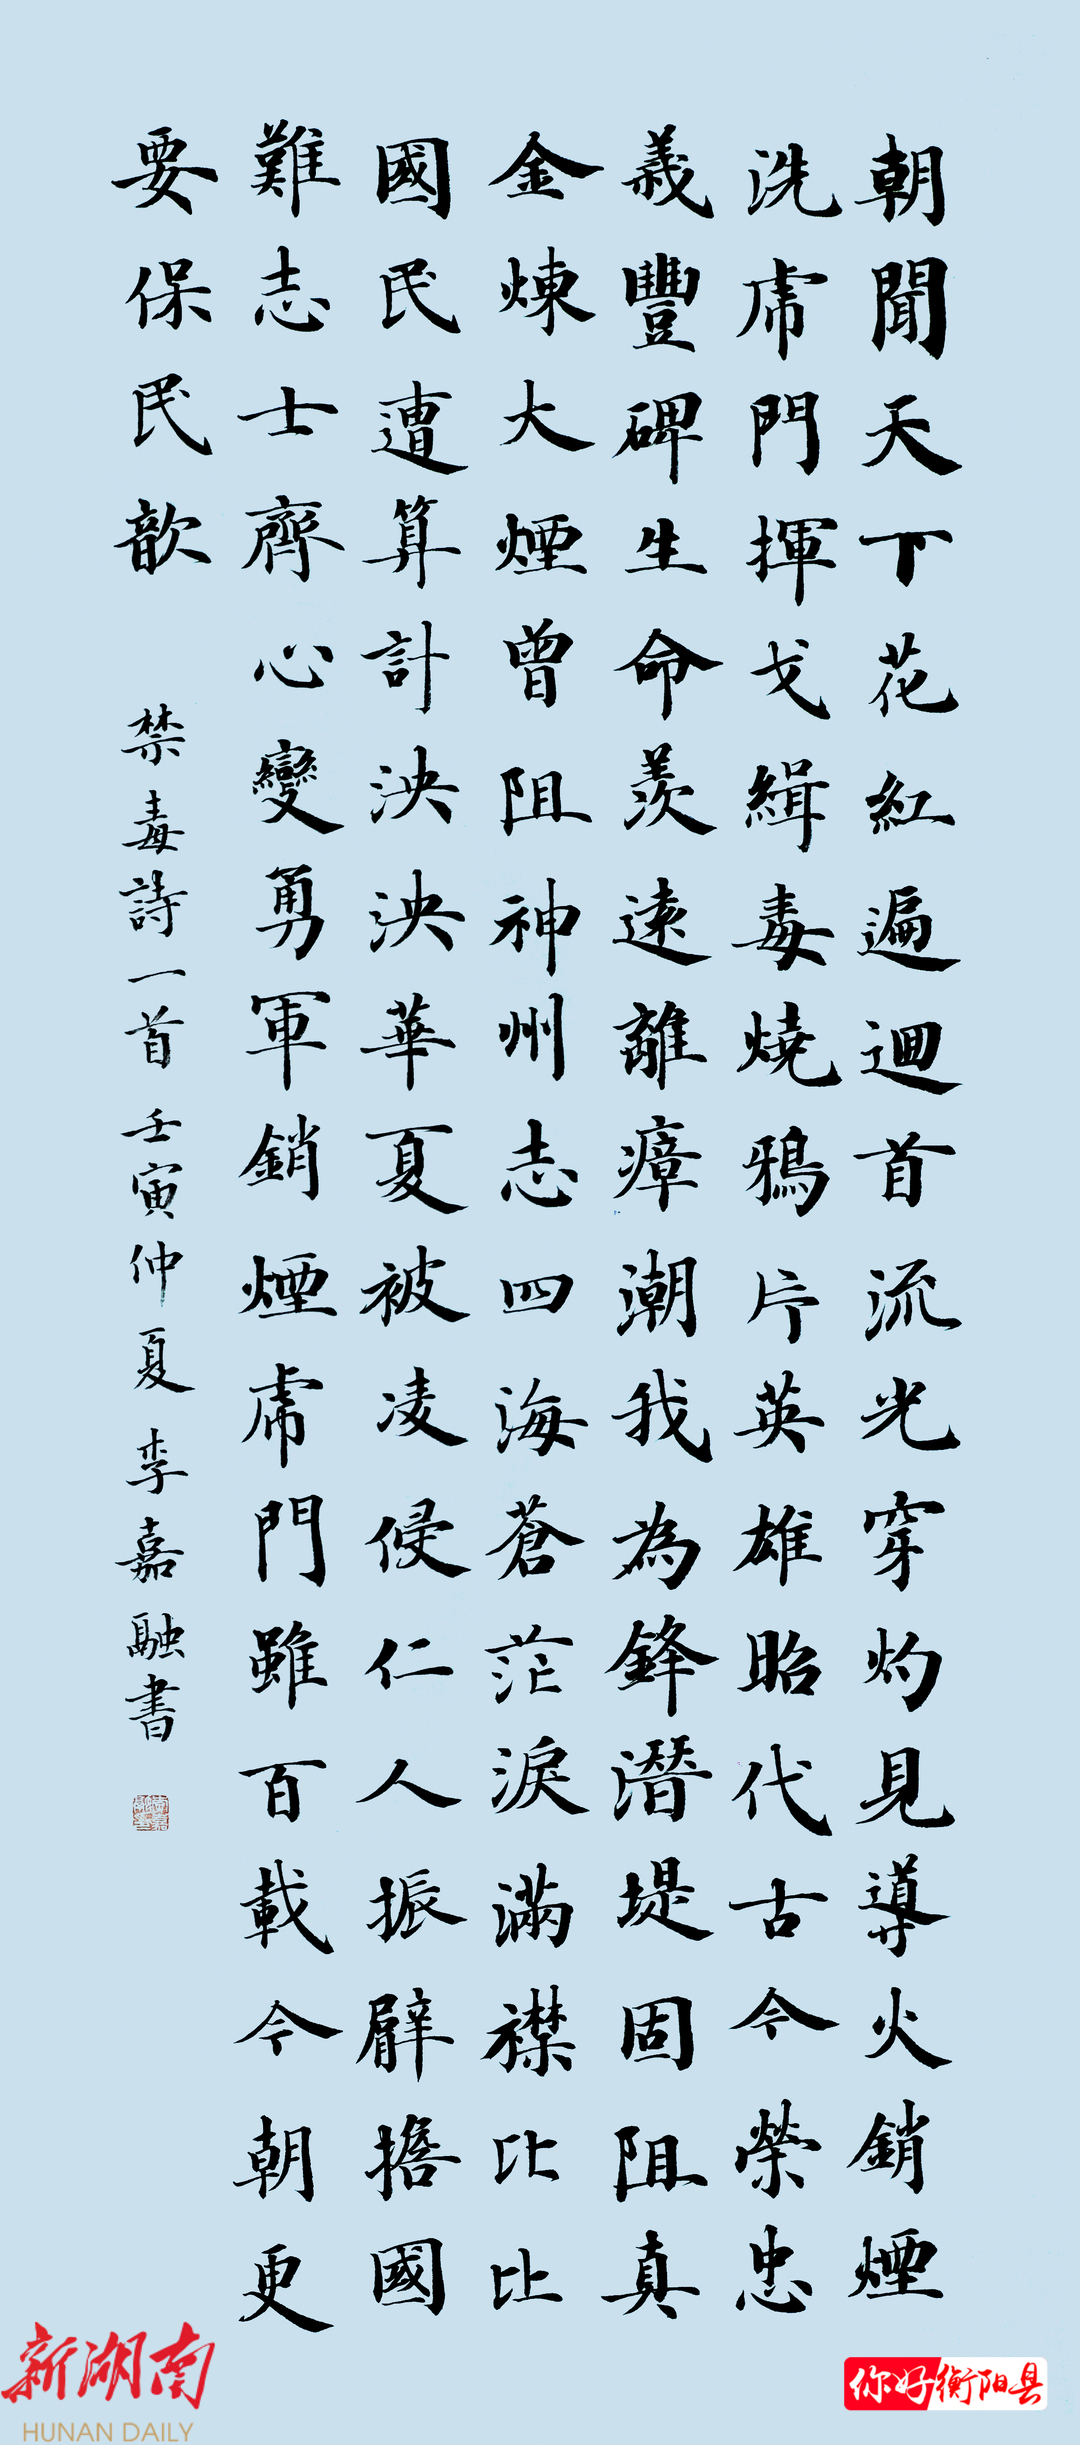 朝聞天下花紅遍迴首流光穿灼見導火銷煙
洗虎門揮戈緝毒燒鴉片英雄昭代古今榮忠
義豐碑生命羨遠離瘴潮我為鋒潛堤固阻真
金煉大煙曾阻神州志四海蒼茫淚滿襟比比
國民遭算計泱泱華夏被凌侵仁人振臂擔國
難志士齊心變勇軍銷煙虎門雖百載今朝更
要保民歆
禁毒詩一首 壬寅仲夏 李嘉融書
新湖南
HUNAN DAILY
你好衡阳县